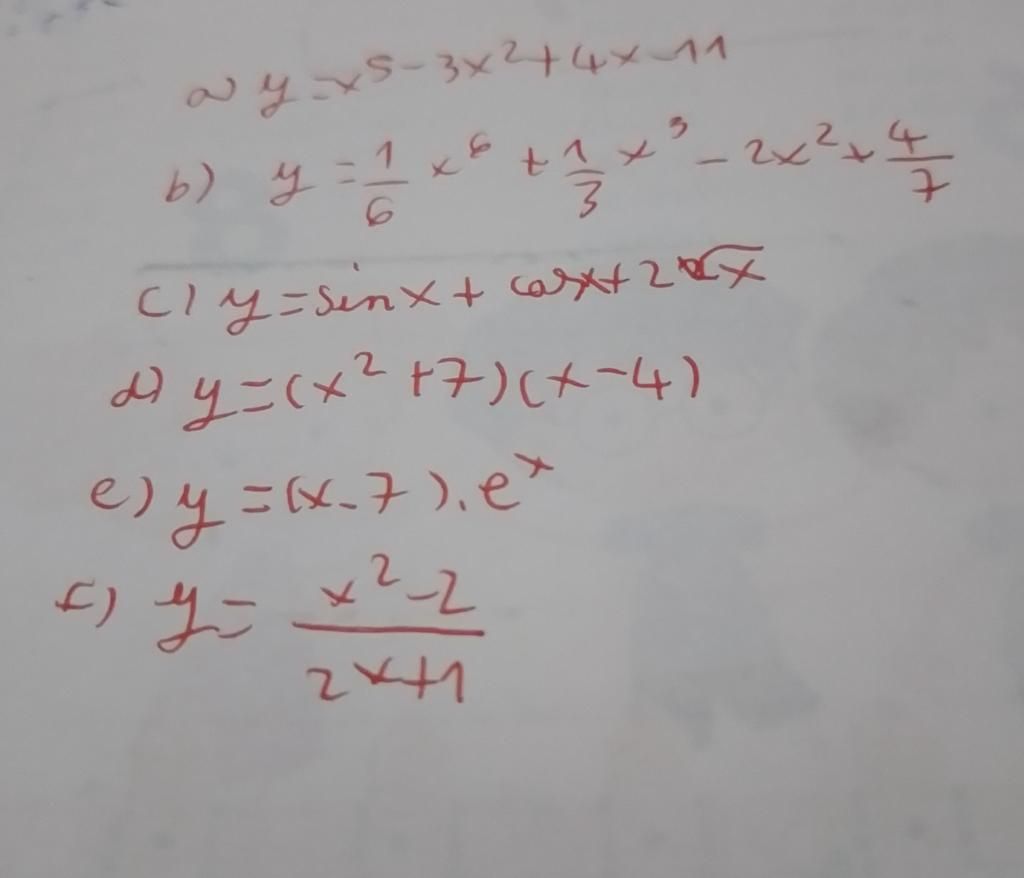 a) y=x⁵-3x²+4x-11
b) y=1/6 x⁶+1/3 x³-2x²+4/7
c) y=sinx+cosx+2√x
d) y=(x²+7)(x-4)
e) y=(x-7).eˣ
f) y=x²-2/2x+1